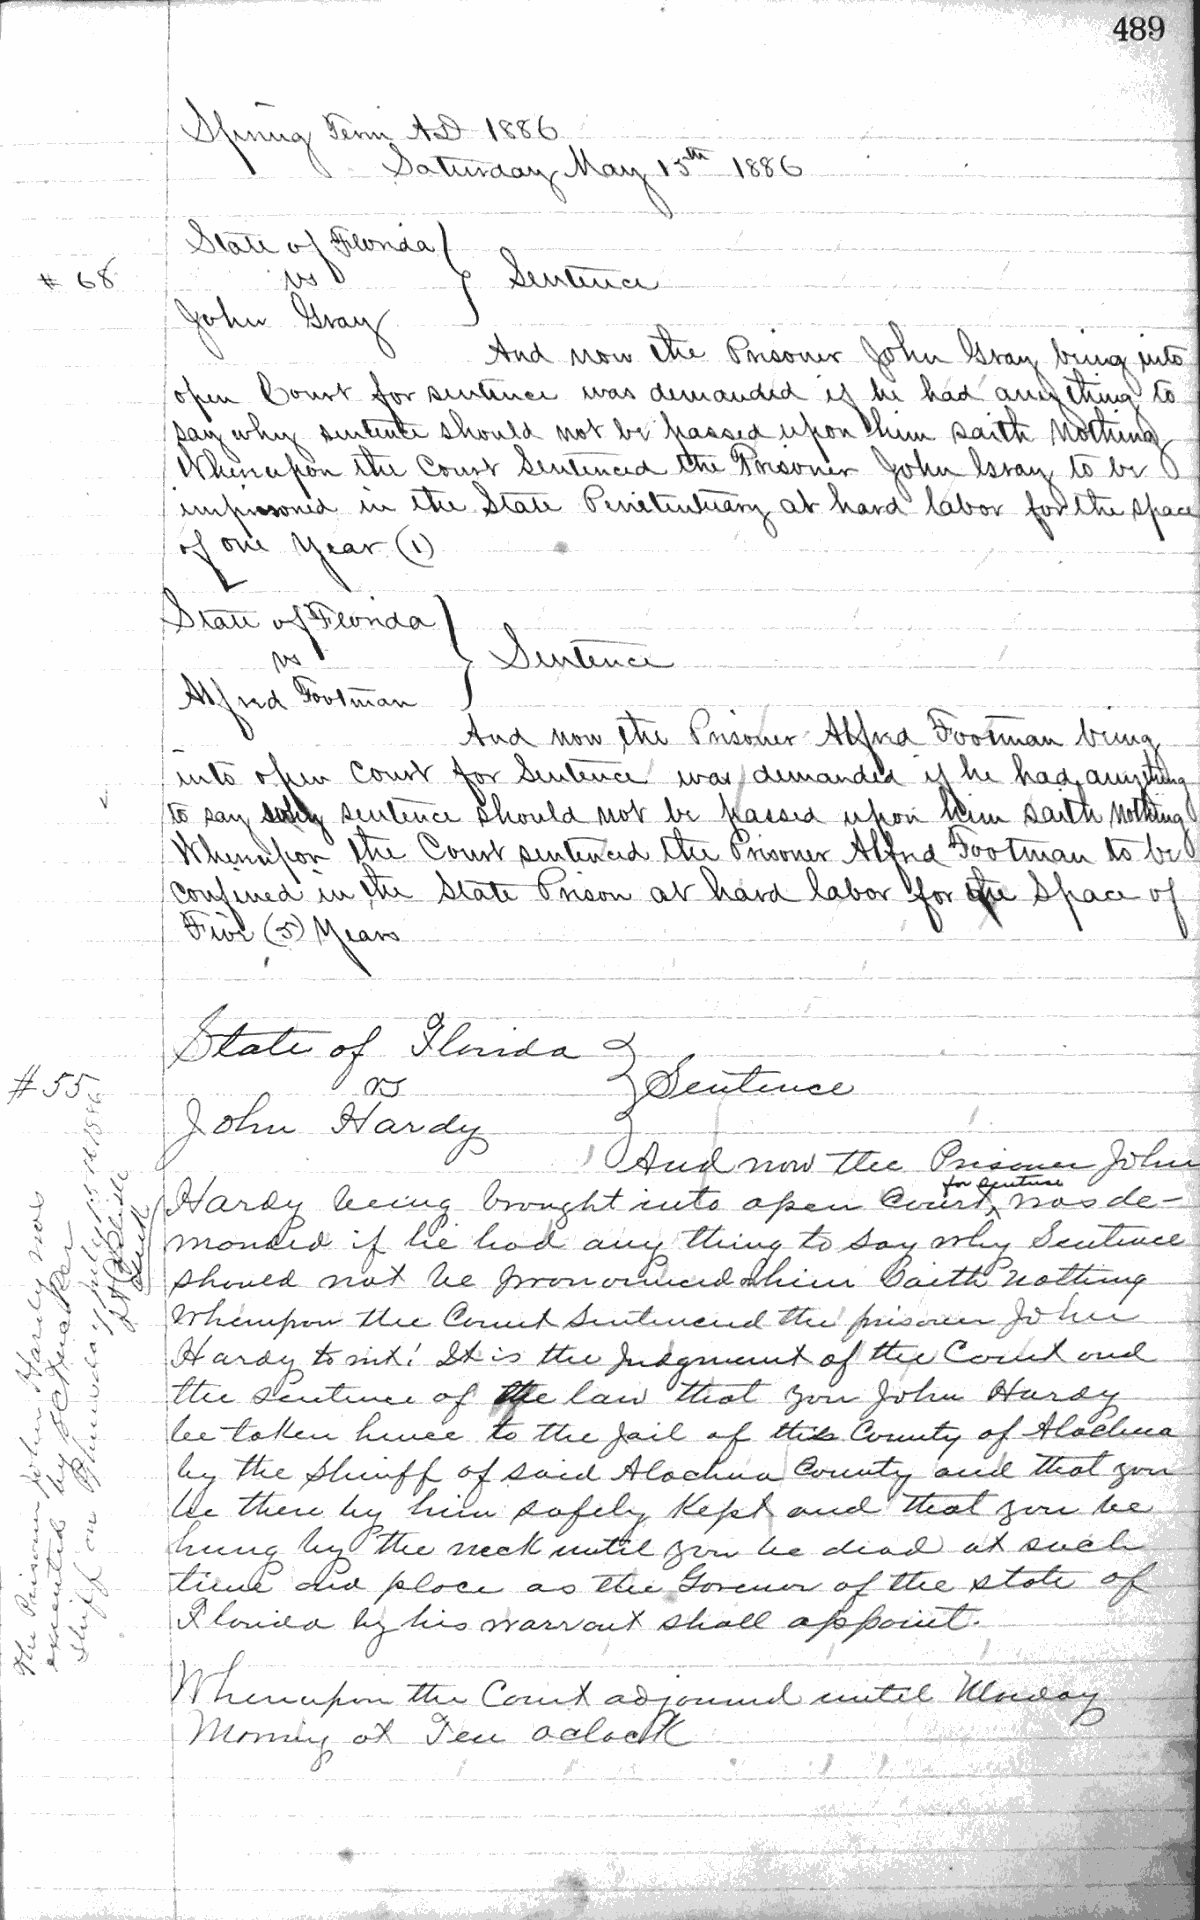 489
Spring Term AD 1886
Saturday May 15th 1886
State of Florida
# 68 vs } Sentence
John Gray
And now the Prisoner John Gray being into
open Court for sentence was demanded if he had any thing to
say why sentence should not be passed upon him saith Nothing
Whereupon the Court Sentenced the Prisoner John Gray to be
imprisoned in the State Penitentuary at hard labor for the space
of one Year (1)
State of Florida
vs } Sentence
Alfred Footman
And now the Prisoner Alfred Footman being
into open Court for Sentence was demanded if he had anything
to say why sentence should not be passed upon him saith Nothing
Whereupon the Court sentenced the Prisoner Alfred Footman to be
confined in the State Prison at hard labor for the Space of
Five (5) Years
State of Florida
# 55 vs } Sentence
John Hardy
And now the Prisoner John
Hardy being brought into open Court for sentence was de-
manded if he had any thing to say why Sentence
should not be pronounced him Saith Nothing
Whereupon the Court Sentenced the prisoner John
Hardy to wit! It is the Judgment of the Court and
the sentence of the law that you John Hardy
be taken hence to the Jail of this County of Alachua
by the Sheriff of said Alachua County and that you
be there by him safely Kept and that you be
hung by the neck until you be dead at such
time and place as the Governor of the state of
Florida by his warrant shall appoint.
Whereupon the Court adjourned until Monday
Morning at Ten oclock
The Prisoner John Hardy was
executed by
Sheriff on 1886
Clerk